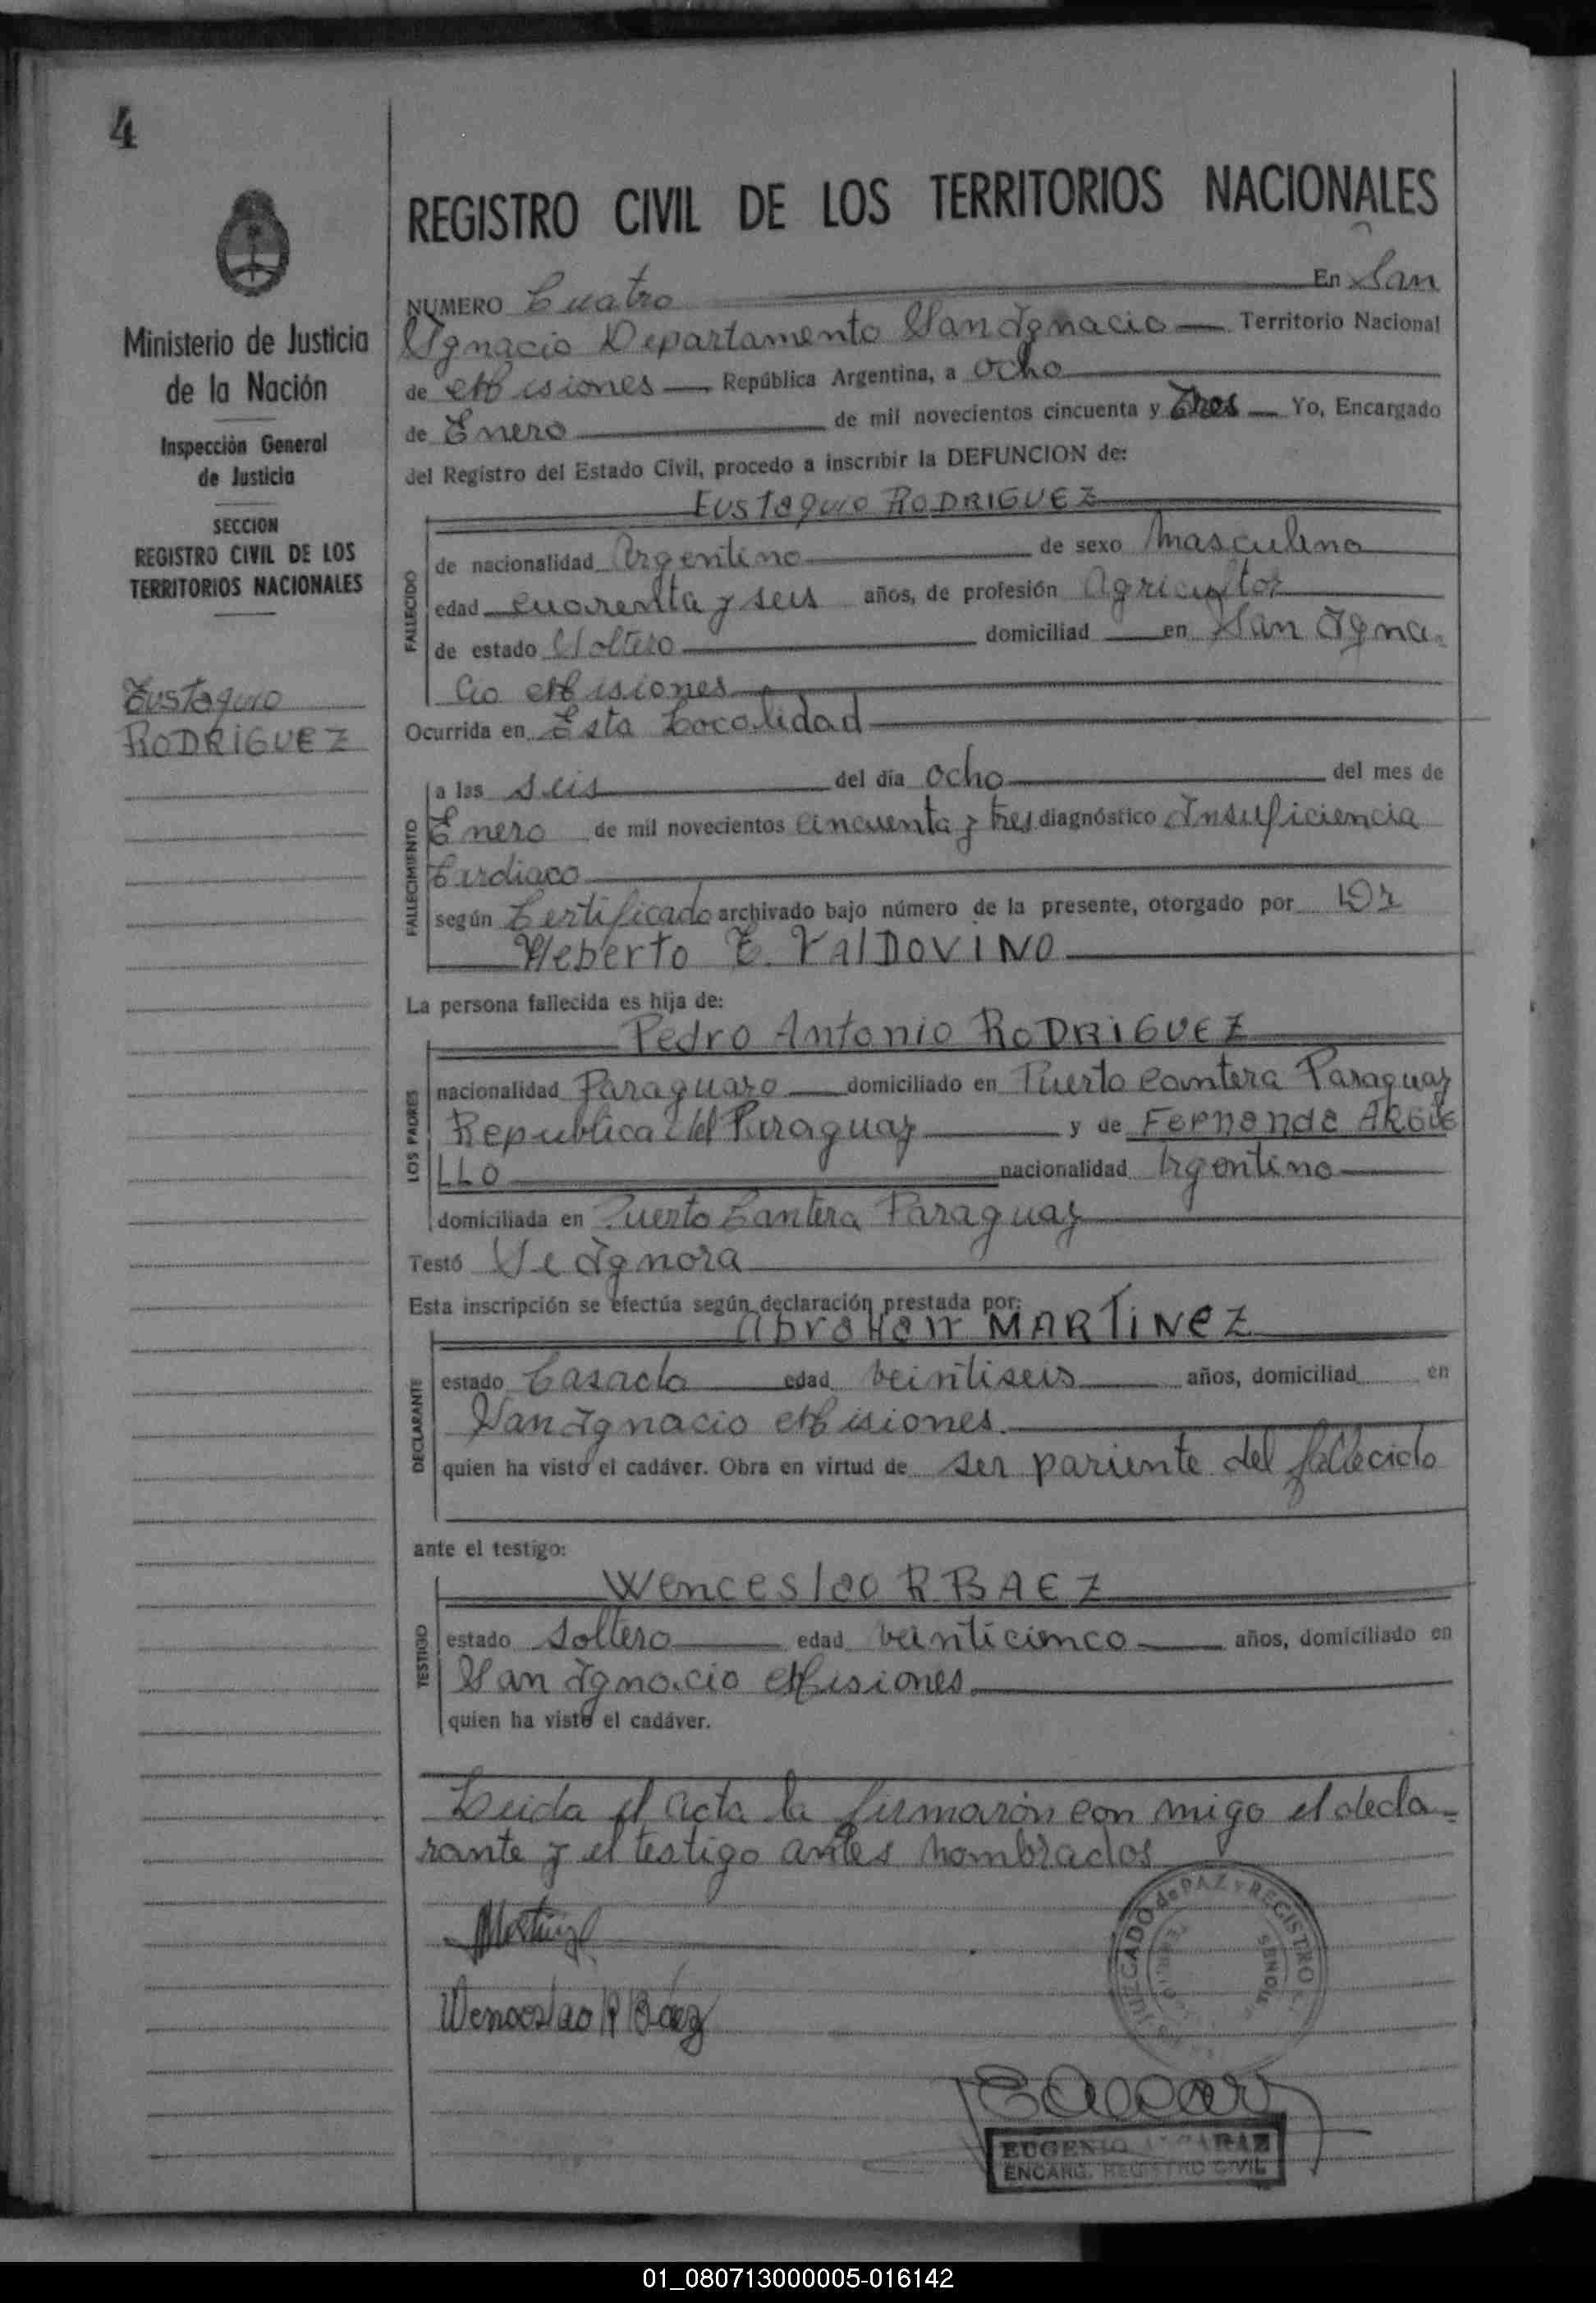 4
Ministerio de Justicia
de la Nación
Inspección General
de Justicia
SECCION
REGISTRO CIVIL DE LOS
TERRITORIOS NACIONALES
Eustaquio
RODRIGUEZ
REGISTRO CIVIL DE LOS TERRITORIOS NACIONALES
NUMERO Cuatro En San
Ignacio Departamento San Ignacio Territorio Nacional
de Misiones República Argentina, a Ocho
de Enero de mil novecientos cincuenta y Tres Yo, Encargado
del Registro del Estado Civil, procedo a inscribir la DEFUNCION de:
Eustaquio RODRIGUEZ
FALLECIDO
de nacionalidad Argentino de sexo masculino
edad cuarenta y seis años, de profesión Agricultor
de estado Soltero domiciliad en San Igna
cio Misiones
Ocurrida en Esta Localidad
FALLECIMIENTO
a las Seis del día Ocho del mes de
Enero de mil novecientos cincuenta y tres diagnóstico Insuficiencia
Cardiaco
según Certificado archivado bajo número de la presente, otorgado por Dr
Heberto E. VALDOVINO
La persona fallecida es hija de:
Pedro Antonio RODRIGUEZ
LOS PADRES
nacionalidad Paraguayo domiciliado en Puerto Cantera Paraguay
Republica del Paraguay y de Fernanda ARGUE
LLO nacionalidad Argentino
domiciliada en Puerto Cantera Paraguay
Testó Se Ignora
Esta inscripción se efectúa según declaración prestada por:
Abrahan MARTINEZ
DECLARANTE
estado Casado edad veintiseis años, domiciliad en
San Ignacio Misiones
quien ha visto el cadáver. Obra en virtud de ser pariente del fallecido
ante el testigo:
Wenceslao R BAEZ
TESTIGO
estado Soltero edad veinticinco años, domiciliado en
San Ignacio Misiones
quien ha visto el cadáver.
Leida el acta la firmarón con migo el decla-
rante y el testigo antes nombrados
Martinez
Wenceslao R Báez
JUZGADO de PAZ y REGISTRO
EUGENIO ALCARAZ
ENCARG. REGISTRO CIVIL
01_080713000005-016142